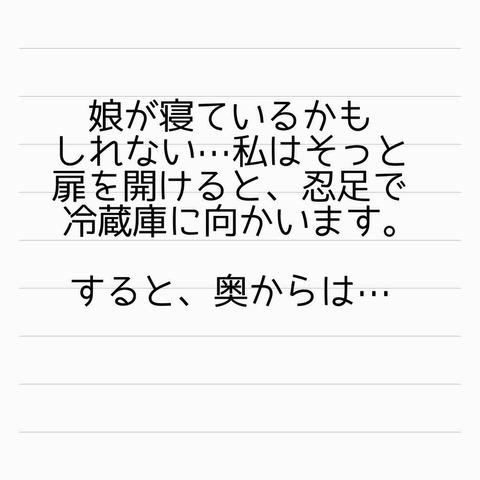 娘が寝ているかも
しれない…私はそっと
扉を開けると、忍足で
冷蔵庫に向かいます。
すると、奥からは…